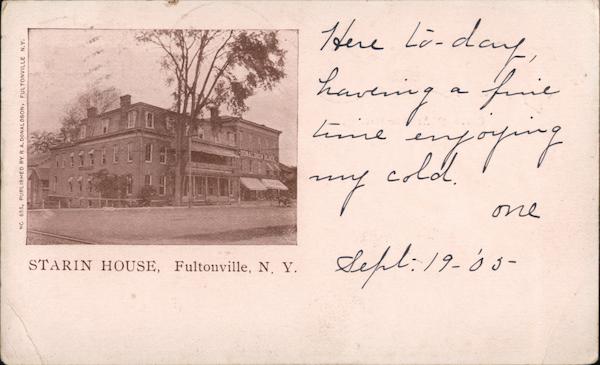 NO. 655, PUBLISHED BY R. A. DONALDSON, FULTONVILLE N.Y.
STARIN HOUSE, Fultonville, N. Y.
Here to-day,
having a fine
time enjoying
my cold.
one
Sept. 19-'05-